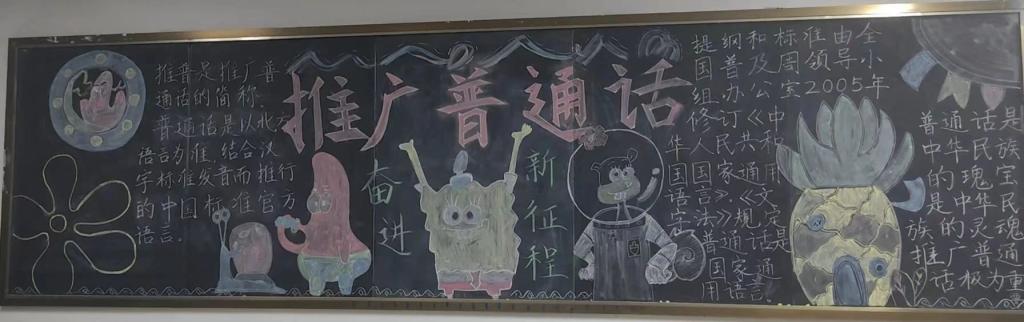 推普是推广普
通话的简称,
普通话是以北方
语言为准,结合汉
字标准发音而推行
的中国标准官方
语言。
推广普通话
奋进
新征程
提纲和标准由全
国普及周领导小
组办公室2005年
修订《中
华人民共和
国国家通用
语言》,《文
字法》规定
普通话是
国家通
用语言。
普通话是
中华民族
的瑰宝
是中华民
族的灵魂
推广普通
话极为重